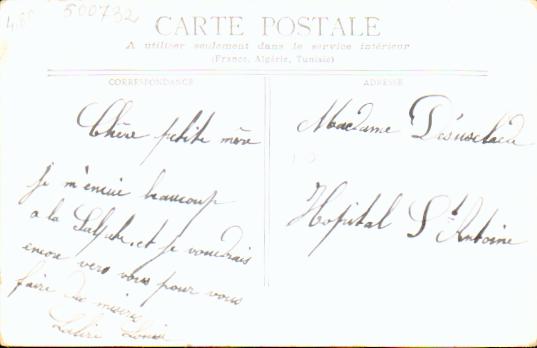 500732
CARTE POSTALE
A utiliser seulement dans le service intérieur
(France, Algérie, Tunisie)
CORRESPONDANCE
Chère petite mère
je m'ennuie beaucoup
a la et je voudrais
encore vers vous pour vous
faire des misères
Louise
ADRESSE
Madame
Hopital St Antoine